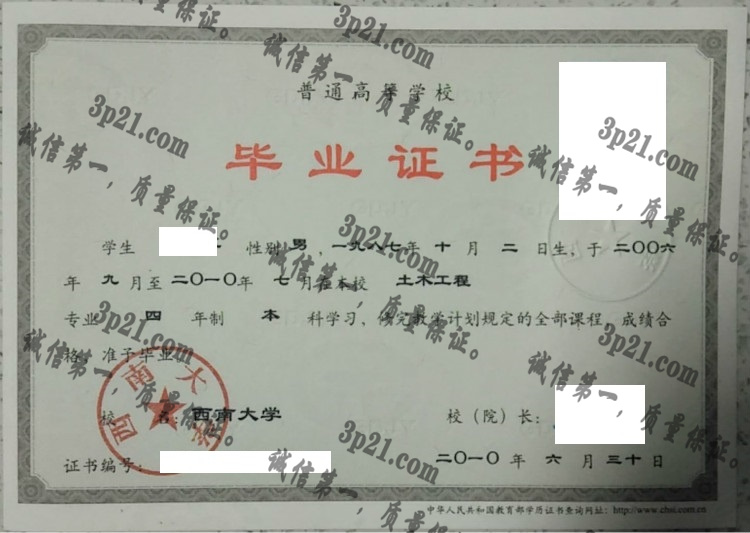 普通高等学校
毕业证书
学生 性别 男 ,一九八七年 十 月 二 日生,于 二〇〇六
年 九 月至 二〇一〇年 七 月在本校 土木工程
专业 四 年制 本 科学习,修完教学计划规定的全部课程,成绩合
格,准予毕业。
校 名: 西南大学 校(院)长:
证书编号: 二〇一〇 年 六 月 三十日
中华人民共和国教育部学历证书查询网址:http://www.chsi.com.cn
西南大学
3p21.com
诚信第一,质量保证。
3p21.com
诚信第一,质量保证。
3p21.com
诚信第一,质量保证。
3p21.com
诚信第一,质量保证。
3p21.com
诚信第一,质量保证。
3p21.com
诚信第一,质量保证。
3p21.com
诚信第一,质量保证。